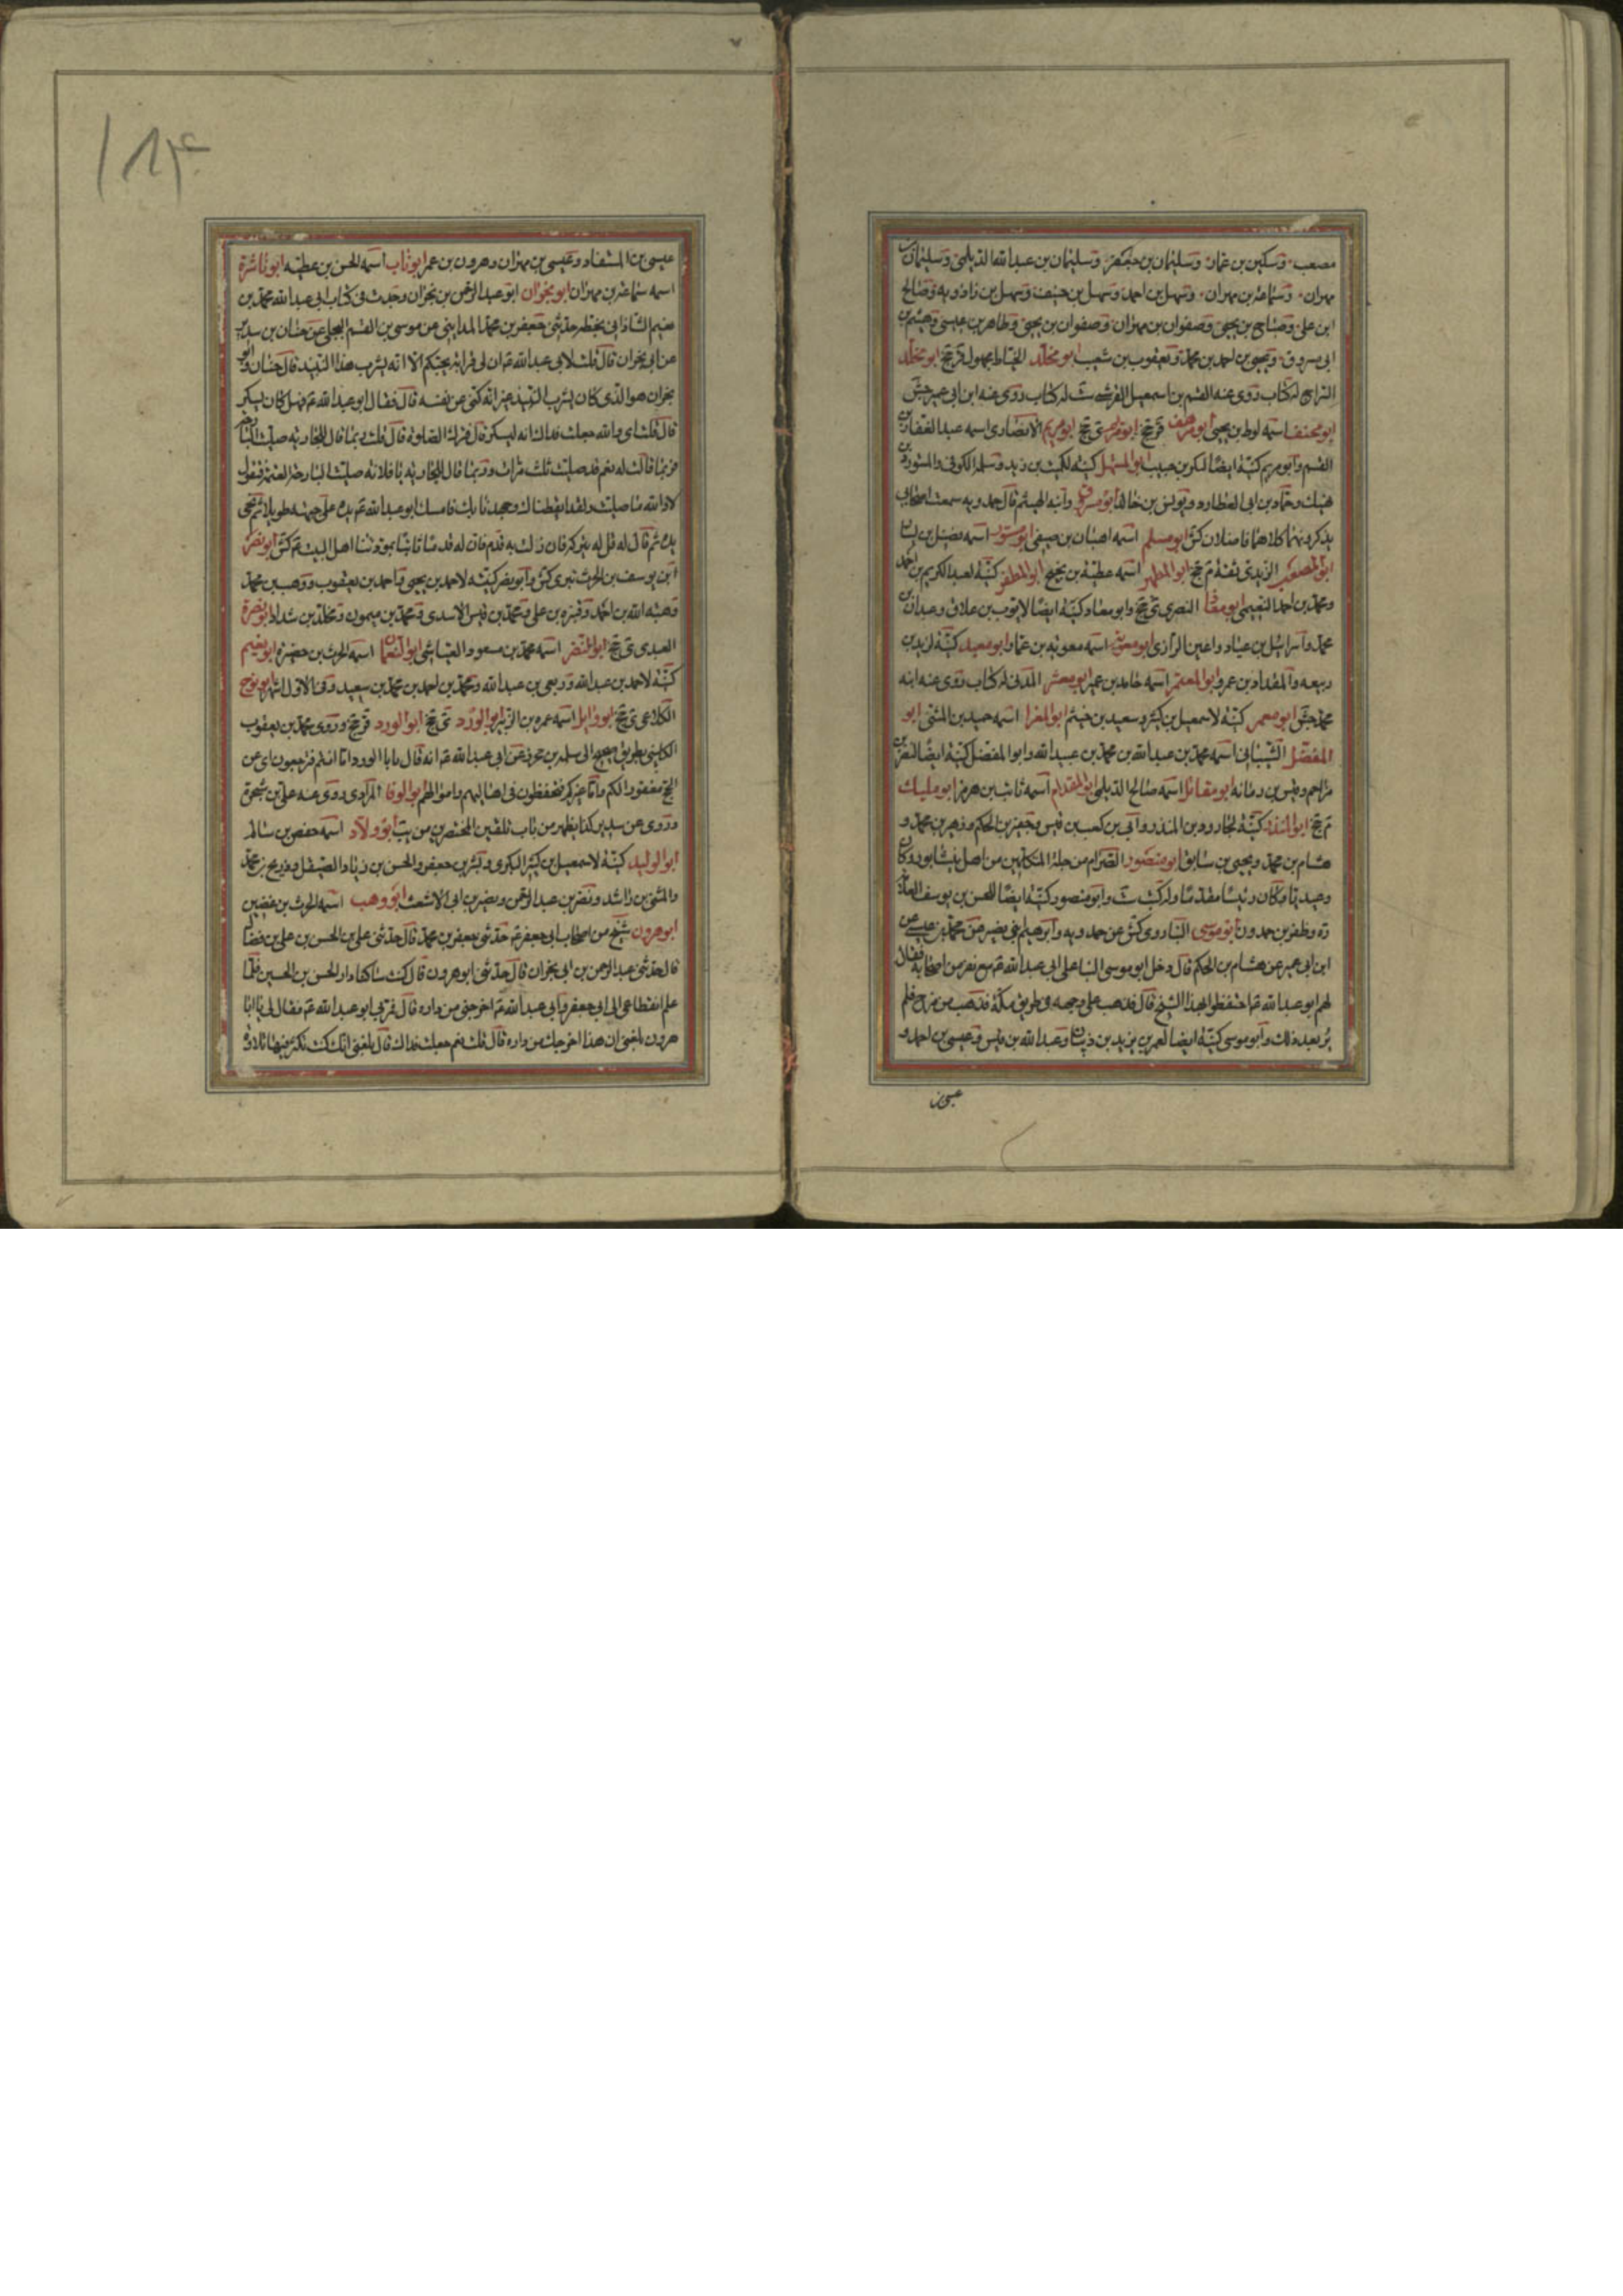 مصعب وسكين بن عمار وسليمان بن جعفر وسليمان بن عبدالله الديلمى وسليمان بن
مهران وسماعة بن مهران وسهل بن احمد وسهل بن حنيف وسهل بن زاذويه وصالح
ابن على وصباح بن يحيى وصفوان بن مهران وصفوان بن يحيى وطاهر بن عيسى وهيثم بن
ابى مسروق ويحيى بن احمد بن محمد ويعقوب بن شعيب ابو مخلد الخياط مجهول قر جخ ابو مخلد
السراج له كتاب روى عنه القسم بن اسمعيل القرشى ست له كتاب روى عنه ابن ابى عمير جش
ابو مخنف اسمه لوط بن يحيى ابو مرهف قر جخ ى جخ ابو مريم الانصارى اسمه عبد الغفار بن
القسم وابو مريم كنية ايضا لبكر بن حبيب ابو المستهل كنية لكميت بن زيد وسلمة الكوفى والمستورد بن
نهيك وحماد بن ابى العطارد ويونس بن خالها ابو مسروق وابنه الهيثم قال حمدويه سمعت اصحابى
يذكرونهما كلاهما فاضلان كش ابو مسلم اسمه اهبان بن صيفى ابو مستورد اسمه فضيل بن يسار
ابو المصعب الزيدى ثقة م جخ ابو المطهر اسمه عطية بن نجيح ابو المظفر كنية لعبد الكريم بن احمد
ومحمد بن احمد النعيمى ابو معاذ النصرى ى جخ وابو معاذ كنية ايضا لايوب بن علاق وعبدان بن
محمد واسرائيل بن عياد واعين الرازى ابو معوية اسمه معوية بن عمار ابو معبد كنية لزيد بن
ربيعه والمقداد بن عمرو ابو المعتمر اسمه حامد بن عمير ابو معشر المدنى له كتاب روى عنه ابنه
محمد جش ابو معمر كنية لاسمعيل بن كثير وسعيد بن خيثم ابو المغرا اسمه حميد بن المثنى ابو
المفضل الشيبانى اسمه محمد بن عبدالله بن محمد بن عبيد الله وابو المفضل كنية ايضا لنصر بن
مزاحم وقيس بن رمانه ابو مقاتل اسمه صالح الديلمى ابو المقدام اسمه ثابت بن هرمز ابو مليك
م جخ ابو المنذر كنية لجارود بن المنذر وابى بن كعب بن قيس وجفير بن الحكم وزهير بن محمد و
هشام بن محمد ويحيى بن سابق ابو منصور الصرام من جملة المتكلمين من اهل نيشابور وكان
وعيديا وكان رئيسا مقدما وله كتب ست وابو منصور كنية ايضا للحسن بن يوسف العلامة
ره وظفر بن حمدون ابو موسى البناروى كش عن حمدويه وابرهيم ابنى نصير عن محمد بن عيسى عن
ابن ابى عمير عن هشام بن الحكم قال دخل ابو موسى البنا على ابى عبدالله ع مع نفر من اصحابه فقال
لهم ابو عبدالله ع احتفظوا بهذا الشيخ قال فذهب على وجهه فى طريق مكة فذهب من قزح فلم
ير بعد ذلك وابو موسى كنية ايضا لعمر بن يزيد بن ذبيان وعبدالله بن قيس وعيسى بن احمد و
عيسى بن
١٨٣
عيسى بن المستفاد وعيسى بن مهران وهرون بن عمر ابو ناب اسمه الحسن بن عطيه ابو ناشرة
اسمه سماعة بن مهران ابو نجران ابو عبد الرحمن بن نجران وجدت فى كتاب ابى عبدالله محمد بن
نعيم الشاذانى بخطه حدثنى جعفر بن محمد المداينى عن موسى بن القسم البجلى عن حنان بن سدير
عن ابى نجران قال قلت لابى عبدالله ع ان لى قرابة يحبكم الا انه يشرب هذا النبيذ قال حنان وابو
نجران هو الذى كان يشرب النبيذ غير انه كنى عن نفسه قال فقال ابو عبدالله ع فهل كان يسكر
قال قلت اى والله جعلت فداك انه ليسكر قال فيترك الصلوة قال قلت ربما قال للجارية صليت البارحة
فربما قالت له نعم قد صليت ثلث مرات وربما قال للجارية يا فلانة صليت البارحة العتمة فتقول
لا والله ما صليت ولقد ايقظناك وجهدنا بك فامسك ابو عبدالله ع يده على جبهته طويلا ثم نحى
يده ثم قال له قل له يتركه فان زلت به قدم فان له قدما ثابتا بمودتنا اهل البيت م كش ابو نصر
ابن يوسف بن الحرث بترى كش وابو نصر كنيته لاحمد بن يحيى واحمد بن يعقوب ووهب بن محمد
وهبة الله بن احمد وقنبره بن على ومحمد بن قيس الاسدى ومحمد بن ميمون ومخلد بن شداد ابو نضرة
العبدى ى جخ ابو النضر اسمه محمد بن مسعود العياشى ابو النعمان اسمه الحرث بن حضيرة ابو نعيم
كنية لاحمد بن عبدالله وربعى بن عبدالله ومحمد بن احمد بن محمد بن سعيد وفى الاول اشهر ابو نوح
الكلاعى ى جخ ابو وايل اسمه عمره بن الزبير ابو الورد ى جخ ابو الورد قر جخ وروى محمد بن يعقوب
الكلينى بطريق صحيح الى سلمه بن محرز عن ابى عبدالله ع انه قال يابا الورد اما انتم فترجعون اى عن
الحج مغفورا لكم واما غيركم فيحفظون فى اهاليهم واموالهم ابو الوفا المرادى روى عنه على بن شجرة
وروى عن سدير كذا يظهر من باب تلقين المحتضرين من يب ابو ولاد اسمه حفص بن سالم
ابو الوليد كنية لاسمعيل بن كثير البكرى وبشر بن جعفر والحسن بن زياد الصيقل وذريح بن محمد
والمثنى بن راشد ونصر بن عبد الرحمن ونضير بن ابى الاشعث ابو وهب اسمه الحرث بن غضين
ابو هرون شيخ من اصحاب ابى جعفر ع حدثنى جعفر بن محمد قال حدثنى على بن الحسن بن على بن فضال
قال حدثنى عبد الرحمن بن ابى نجران قال حدثنى ابو هرون قال كنت ساكنا دار الحسن بن الحسين فلما
علم انقطاعى الى ابى جعفر وابى عبدالله ع اخرجنى من داره قال فمر بى ابو عبدالله ع فقال لى يا ابا
هرون بلغنى ان هذا اخرجك من داره قال قلت نعم جعلت فداك قال بلغنى انك كنت تكثر فيها تلاوة